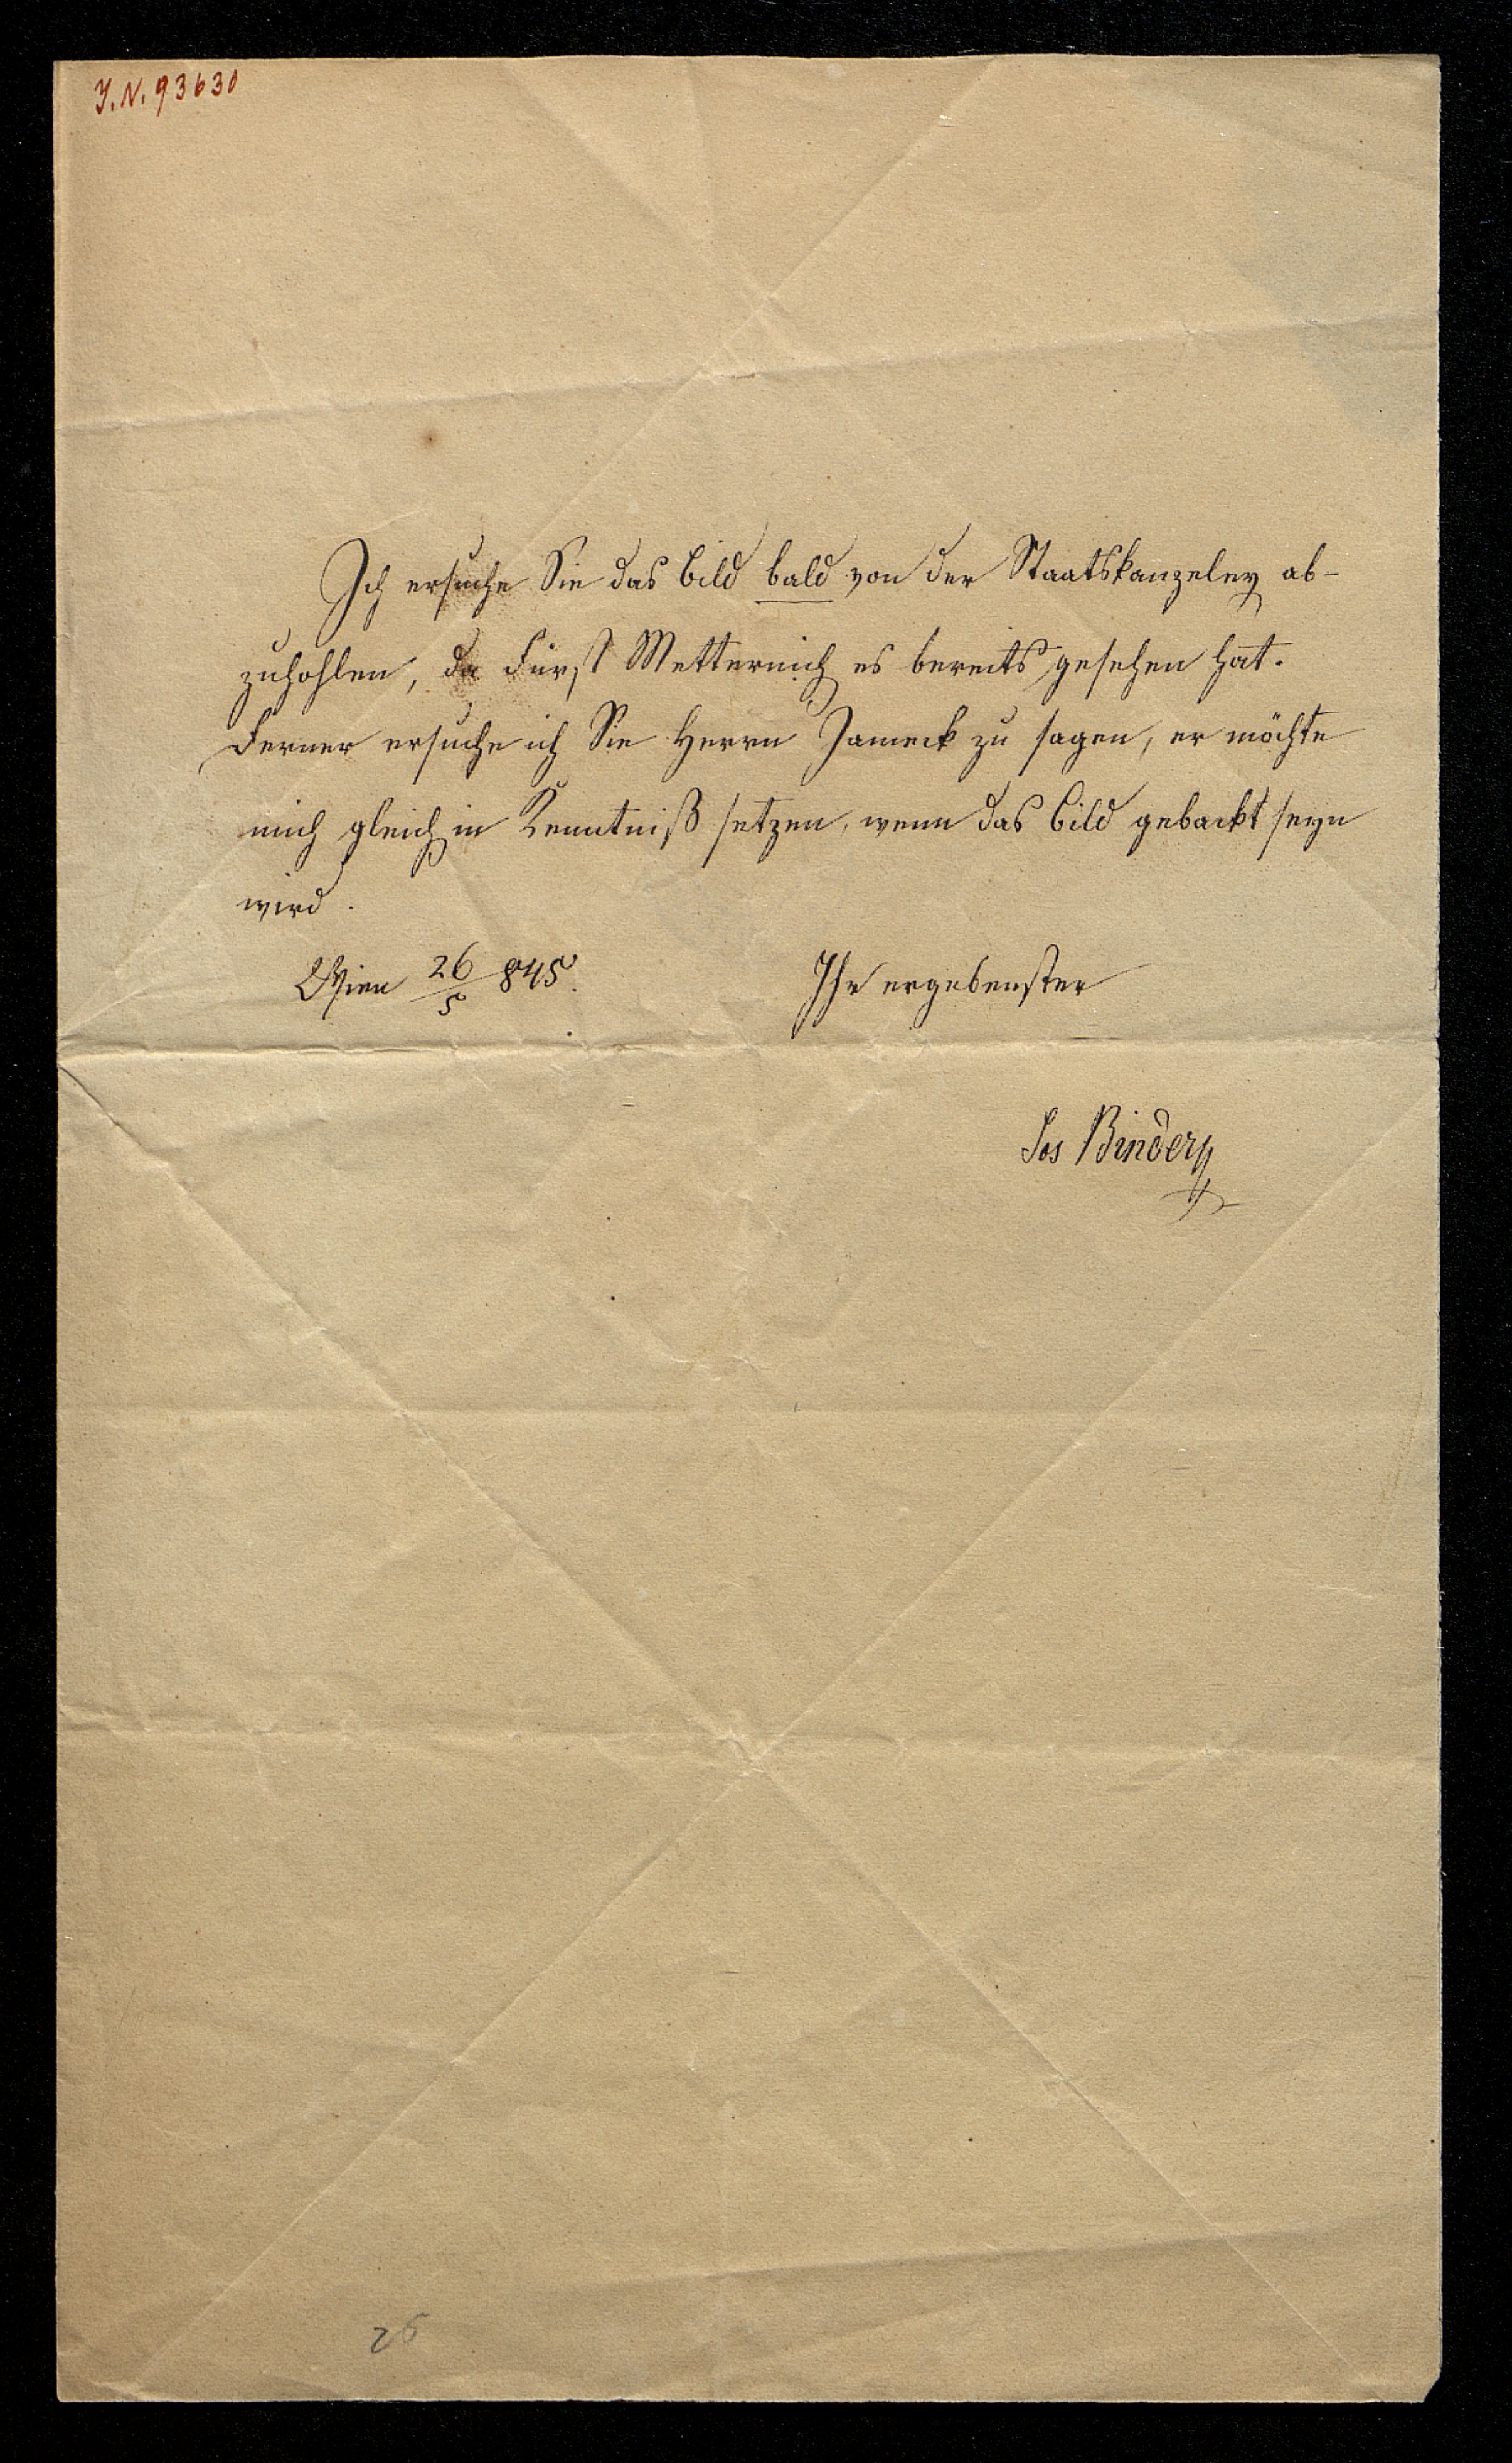 I.N. 93630
Ich ersuche Sie das Bild bald von der Staatskanzeley ab-
zuhohlen, da Fürst Metternich es bereits gesehen hat.
Ferner ersuche ich Sie Herrn Jameck zu sagen, er möchte
mich gleich in Kenntniß setzen, wenn das Bild gebackt seyn
wird.
Wien 26/5 845. Ihr ergebenster
Jos Binder
26